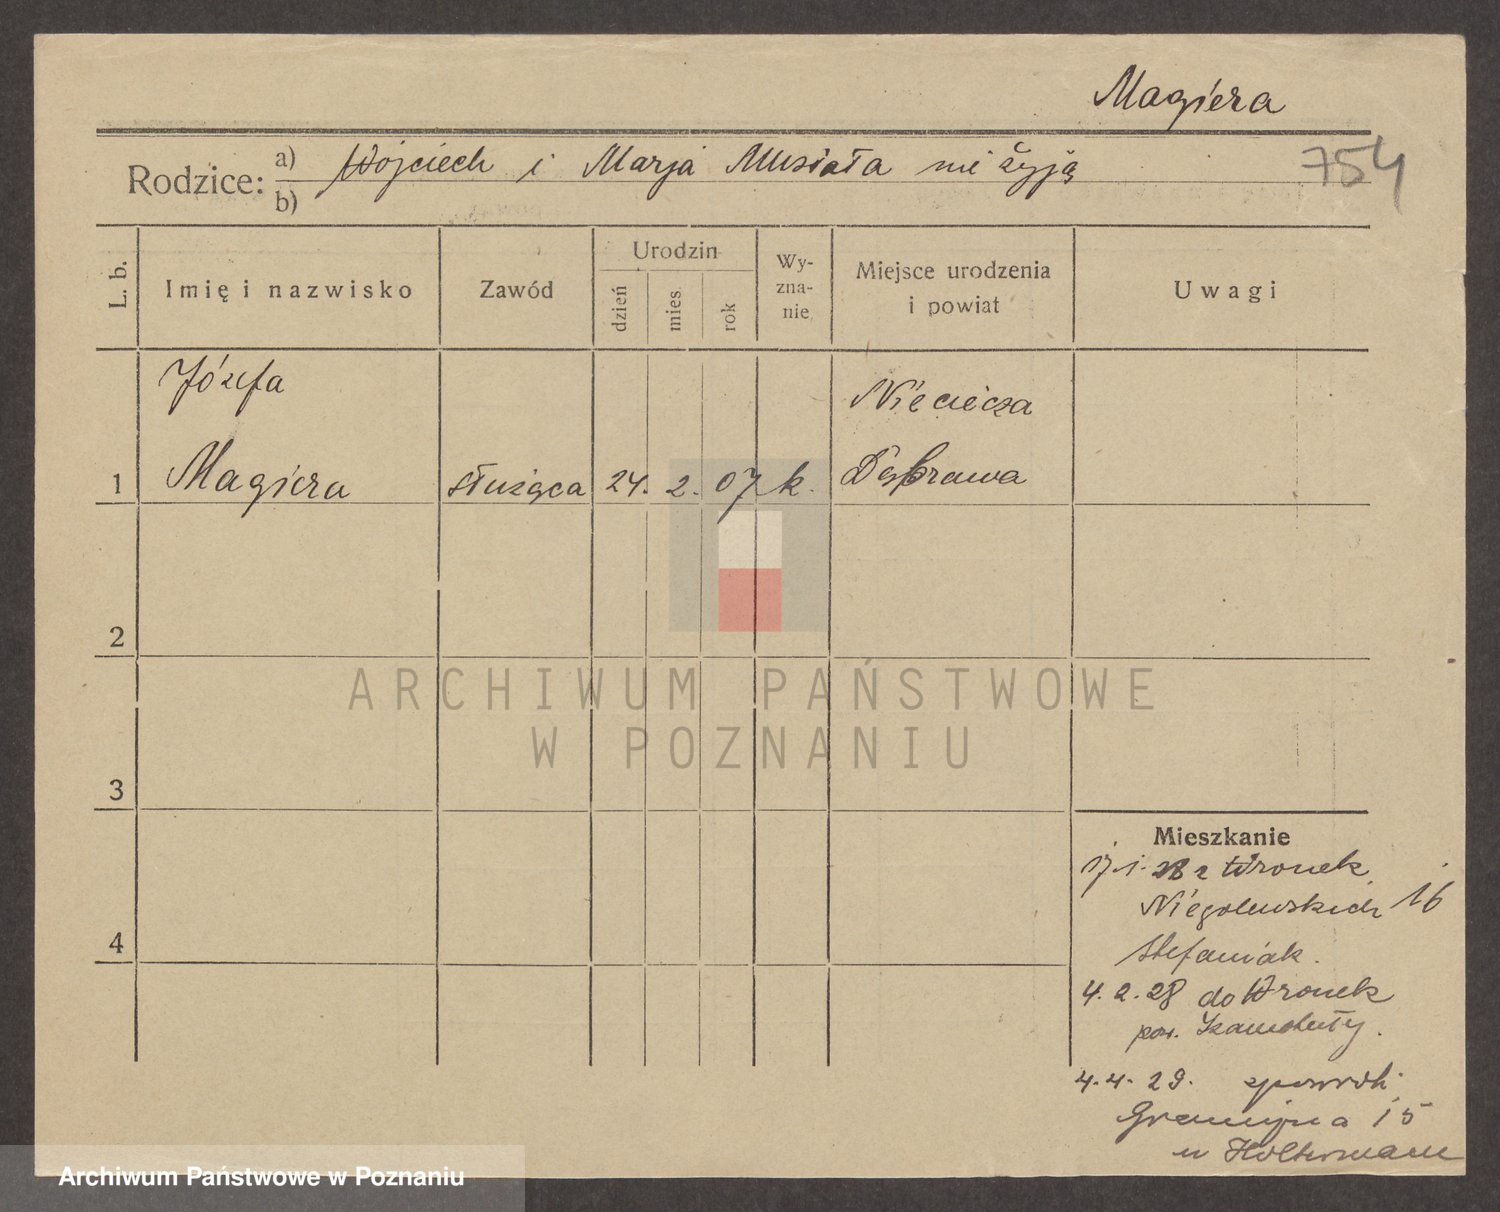 Magiera
754
Rodzice: a) Wojciech i Marja Musiała nie żyją
b)
L. b.
Imię i nazwisko
Zawód
Urodzin
dzień
mies.
rok
Wy-
zna-
nie
Miejsce urodzenia
i powiat
Uwagi
Józefa
Nieciecza
1 Magiera służąca 24. 2. 07 k. Dąbrowa
2
ARCHIWUM PAŃSTWOWE
W POZNANIU
3
Mieszkanie
17.1.28 z Wronek
Niegolewskich 16
Stefaniak.
4
4.2.28 do Wronek
pow. Szamotuły.
4.4.29.
15
u Holtermann
Archiwum Państwowe w Poznaniu